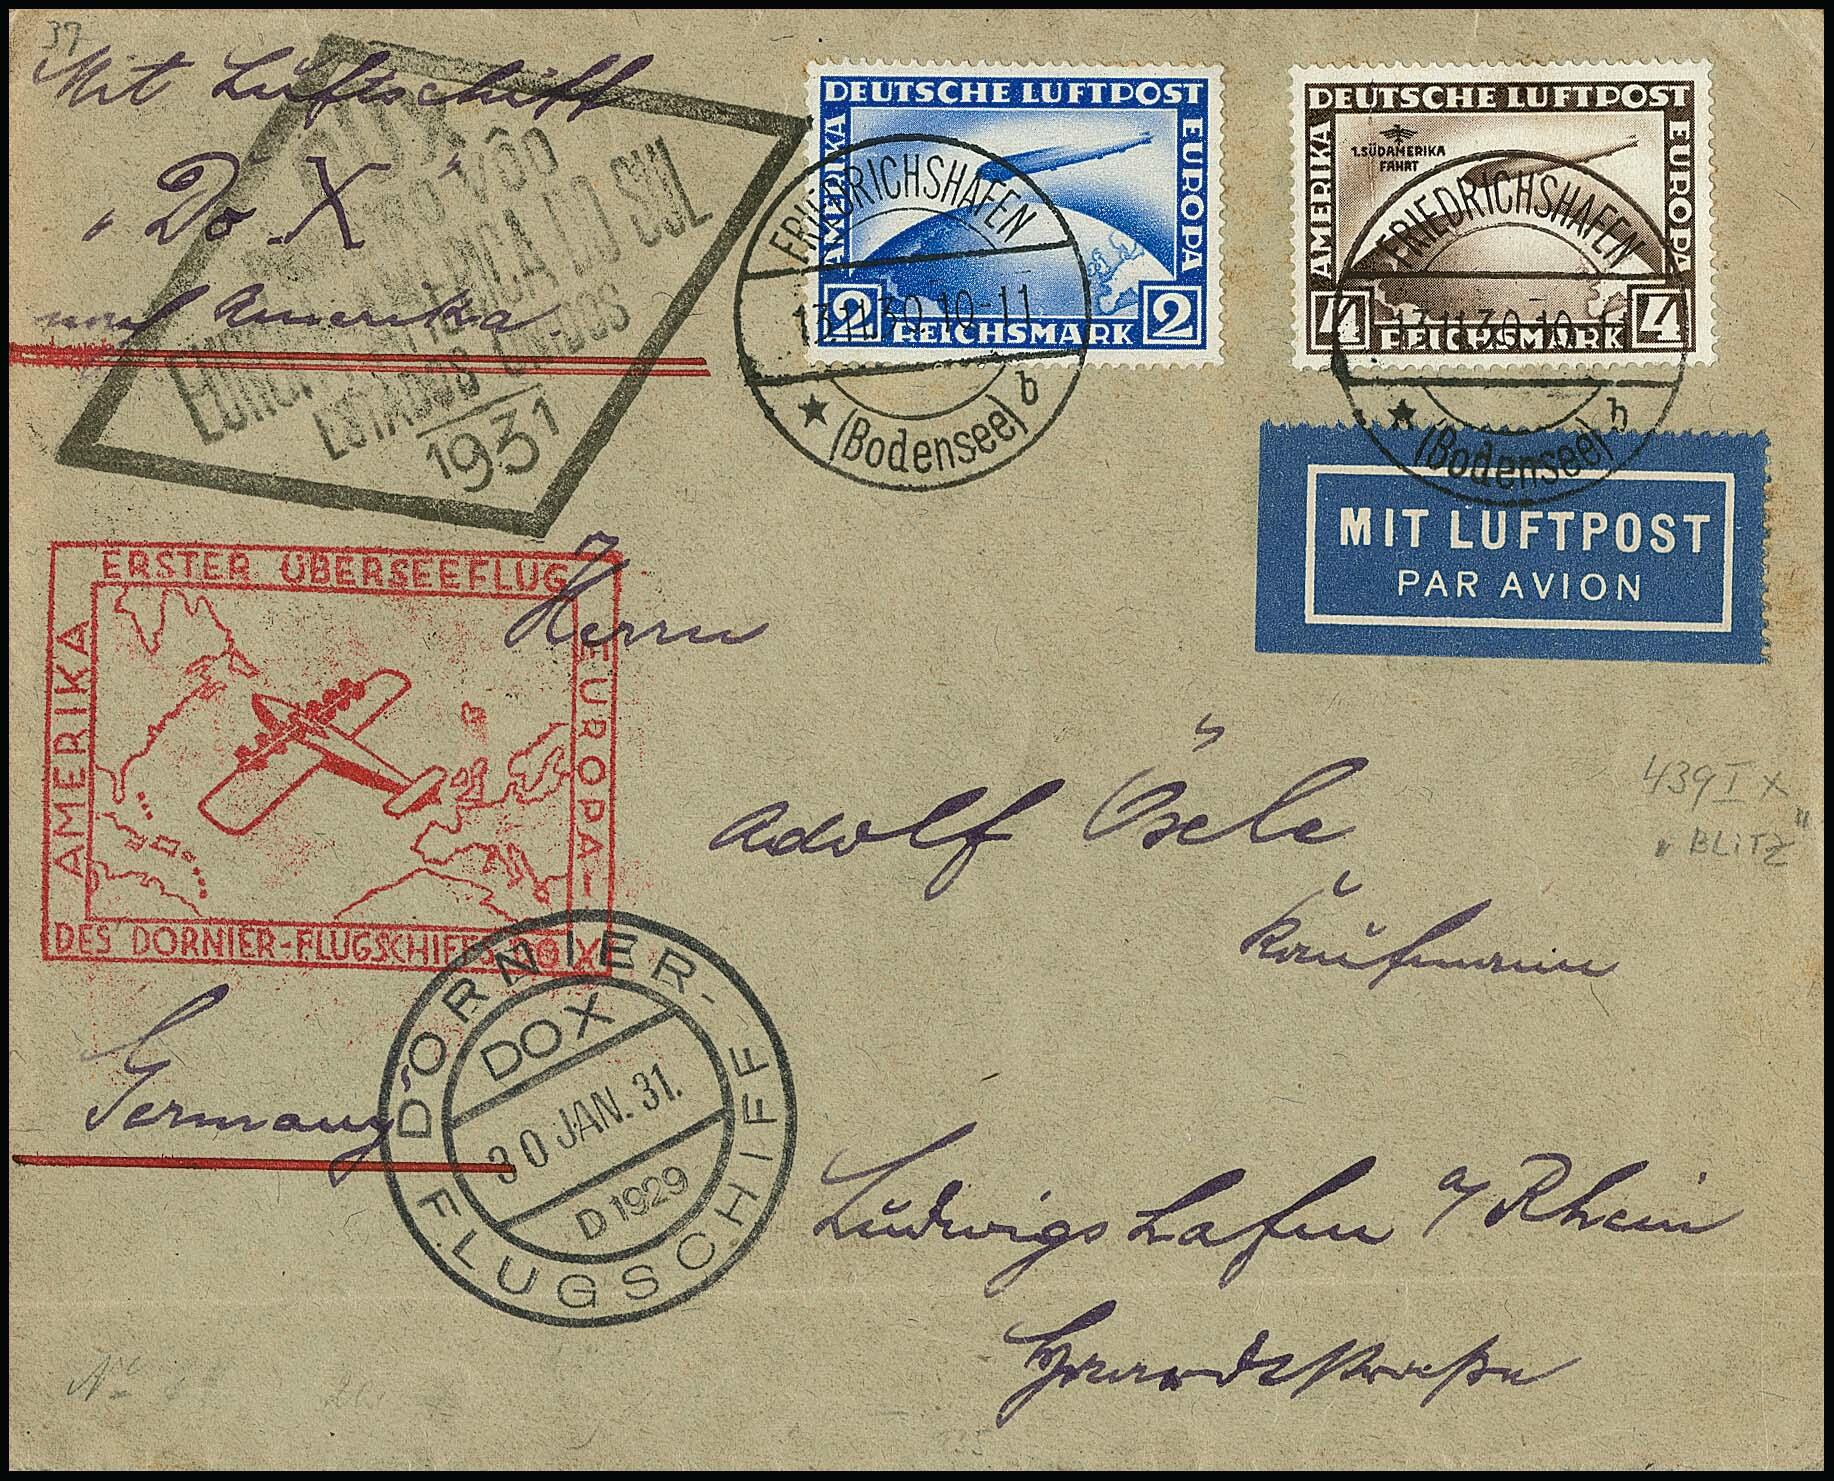 37
Mit Luftschiff
"Do X"
nach Amerika
VÔO
AMERICA DO SUL
ESTADOS UNIDOS
1931
DEUTSCHE LUFTPOST
AMERIKA
EUROPA
2 REICHSMARK 2
DEUTSCHE LUFTPOST
AMERIKA
EUROPA
1. SÜDAMERIKA
FAHRT
4 REICHSMARK 4
FRIEDRICHSHAFEN
13.11.30.10-11
(Bodensee) b
FRIEDRICHSHAFEN
13.11.30.10-11
(Bodensee) b
MIT LUFTPOST
PAR AVION
ERSTER ÜBERSEEFLUG
AMERIKA
EUROPA-
DES DORNIER-FLUGSCHIFFS DO X
Herrn
Adolf Ösele
Kaufmann
439 I x
"BLITZ"
Germany
DORNIER-
DOX
30 JAN. 31.
D 1929
FLUGSCHIFF
Ludwigshafen a/Rhein